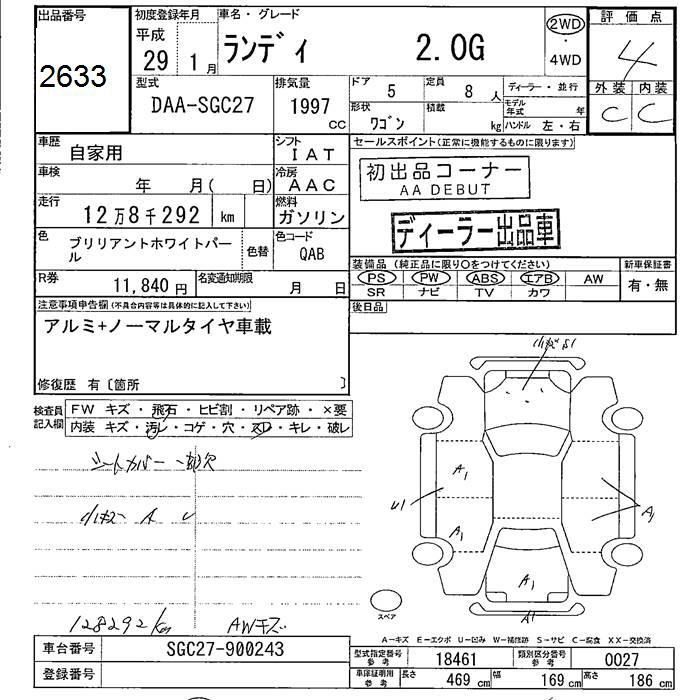 出品番号
2633
初度登録年月
平成
29 1月
車名・グレード
ランディ 2.0G
2WD
・
4WD
評価点
4
外装 内装
C C
型式
DAA-SGC27
排気量
1997
CC
ドア
5
定員
8 人
形状
ワゴン
積載
kg
ディーラー・並行
モデル年式 年
ハンドル 左・右
車歴
自家用
シフト
IAT
車検
年 月( 日)
冷房
AAC
走行
12万8千292 km
燃料
ガソリン
色
ブリリアントホワイトパール
色替
色コード
QAB
R券
11,840 円
名変通知期限
月 日
セールスポイント(正常に機能するものに限ります)
初出品コーナー
AA DEBUT
ディーラー出品車
装備品 (純正品に限り○をつけてください)
PS PW ABS エアB AW
SR ナビ TV カワ
新車保証書
有・無
後日品
注意事項申告欄(不具合内容等は具体的に記入して下さい)
アルミ+ノーマルタイヤ車載
修復歴 有〔箇所 〕
検査員記入欄
FW キズ・飛石・ヒビ割・リペア跡・×要
内装 キズ・汚レ・コゲ・穴・スレ・キレ・破レ
シートカバー一部欠
小キズ A U
128292km AWキズ
A1
A1
U1
A1
A1
A1
スペア
A-キズ E-エクボ U-凹み W-補修跡 S-サビ C-腐食 XX-交換済
車台番号
SGC27-900243
登録番号
型式指定番号
参考
18461
類別区分番号
参考
0027
車庫証明用
参考
長さ
469 cm
幅
169 cm
高さ
186 cm